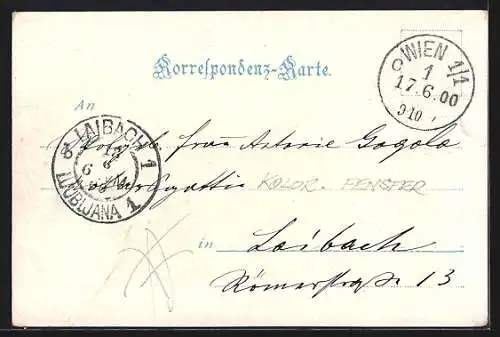 Korrespondenz-Karte.
WIEN 1/1
C 1
17.6.00
9 10
An
LAIBACH 1
LJUBLJANA 1
6
Frau Gogola
KOLOR. FENSTER
in Laibach
Römerstraße 13